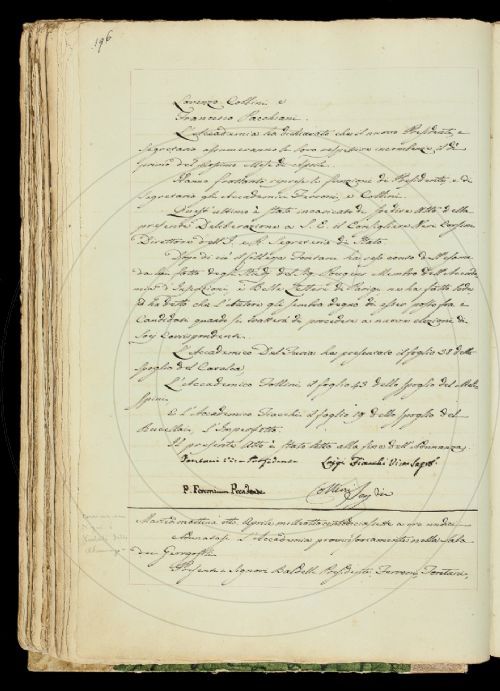 196
Lorenzo Collini e
Francesco Pacchiani.
L'Accademia ha dichiarato che il nuovo Presidente, e
Segretario assumeranno le loro respettive incombenze il dì
primo del prossimo Mese di Aprile.
Hanno frattanto riprese le funzioni di Presidente, e di
Segretario gli Accademici Ferroni, e Collini.
Quest'ultimo è stato incaricato di spedire Atto della
presente Deliberazione a S. E. il Consigliere Neri Corsini
Direttore dell'I. e R. Segreteria di Stato.
Dopo di ciò il Collega Fontani ha reso conto dell'esame
da lui fatto degli del Sig. Membro dell'Accade-
mia d'Iscrizioni, e Belle Lettere di Parigi ne ha fatto lode
ed ha detto che l'Autore gli sembra degno di esser posto fra
Candidati quando si tratterà di procedere a nuove elezioni di
Soci Corrispondenti.
L'Accademico Del Furia ha presentato il foglio 38 dello
Spoglio del Cavalca
L'Accademico Follini il foglio 43 dello Spoglio del Male-
spini
E l'Accademico Fiacchi il foglio 19 dello Spoglio del
Rucellai, L'Ape
Il presente Atto è stato letto alla fine dell'Adunanza.
Fontani Vice Presidente Luigi Fiacchi Vice Segr.
P. Ferroni Presidente Collini Seg.rio
Martedì mattina otto Aprile mille ottocento diciassette a ore undici
Adunatasi l'Accademia provvisoriamente nella Sala
dei Georgofili
Presenti i Signori Baldelli Presidente, Ferroni, Fontani,